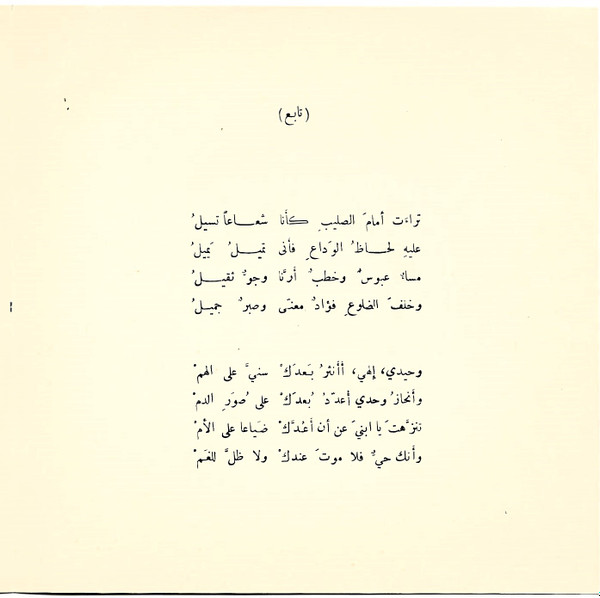 (تابع)
تراءت أمامَ الصليبِ كأنا شعاعاً تسيلُ
عليهِ لحاظُ الوَداعِ فأنى تميلُ يميلُ
مساءٌ عبوسٌ وخطبٌ أرنَّا وجوٌّ ثقيلُ
وخلفَ الضلوعِ فؤادٌ معنّى وصبرٌ جميلُ
وحيدي، إلهي، أأنثرُ بَعدَكْ سنيَّ على الهمْ
وأنحازُ وحدي أعدّدُ بُعدَكْ على صُوَرِ الدمْ
تنزَّهتَ يا ابنيَ عن أن أعُدَّكْ ضَياعا على الأمْ
وأنك حيٌّ فلا موتَ عندكْ ولا ظلَّ للغَمْ